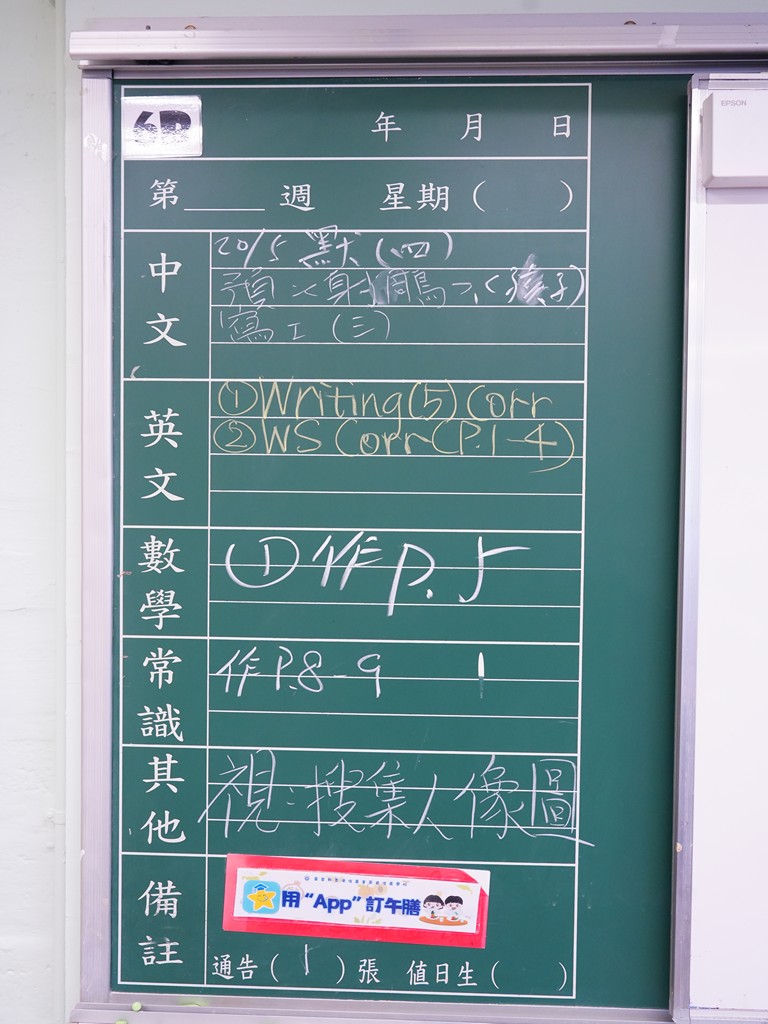 EPSON
6D
年 月 日
第____週 星期( )
中文
20/5 默(四)
預<射鵰>、(孩子)
寫工(三)
英文
①Writing(5) Corr
②WS Corr(P.1-4)
數學
①作P.5
常識
作P.8-9
其他
視:搜集人像圖
備註
用“App”訂午膳
通告( 1 )張 值日生( )